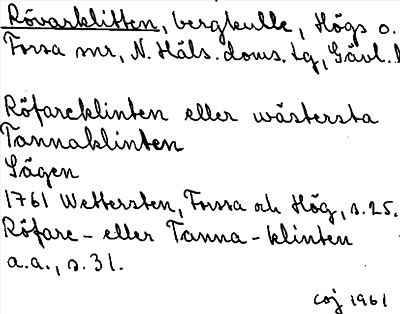 Rövarklitten, bergkulle, Högs o.
Forsa snr, N. Häls. doms. tg, Gävl. l
Röfareklinten eller wästersta
Tannaklinten
Sägen
1761 Wettersten, Forssa och Hög, s. 25.
Röfare- eller Tanna-klinten
a.a., s. 31.
coj 1961